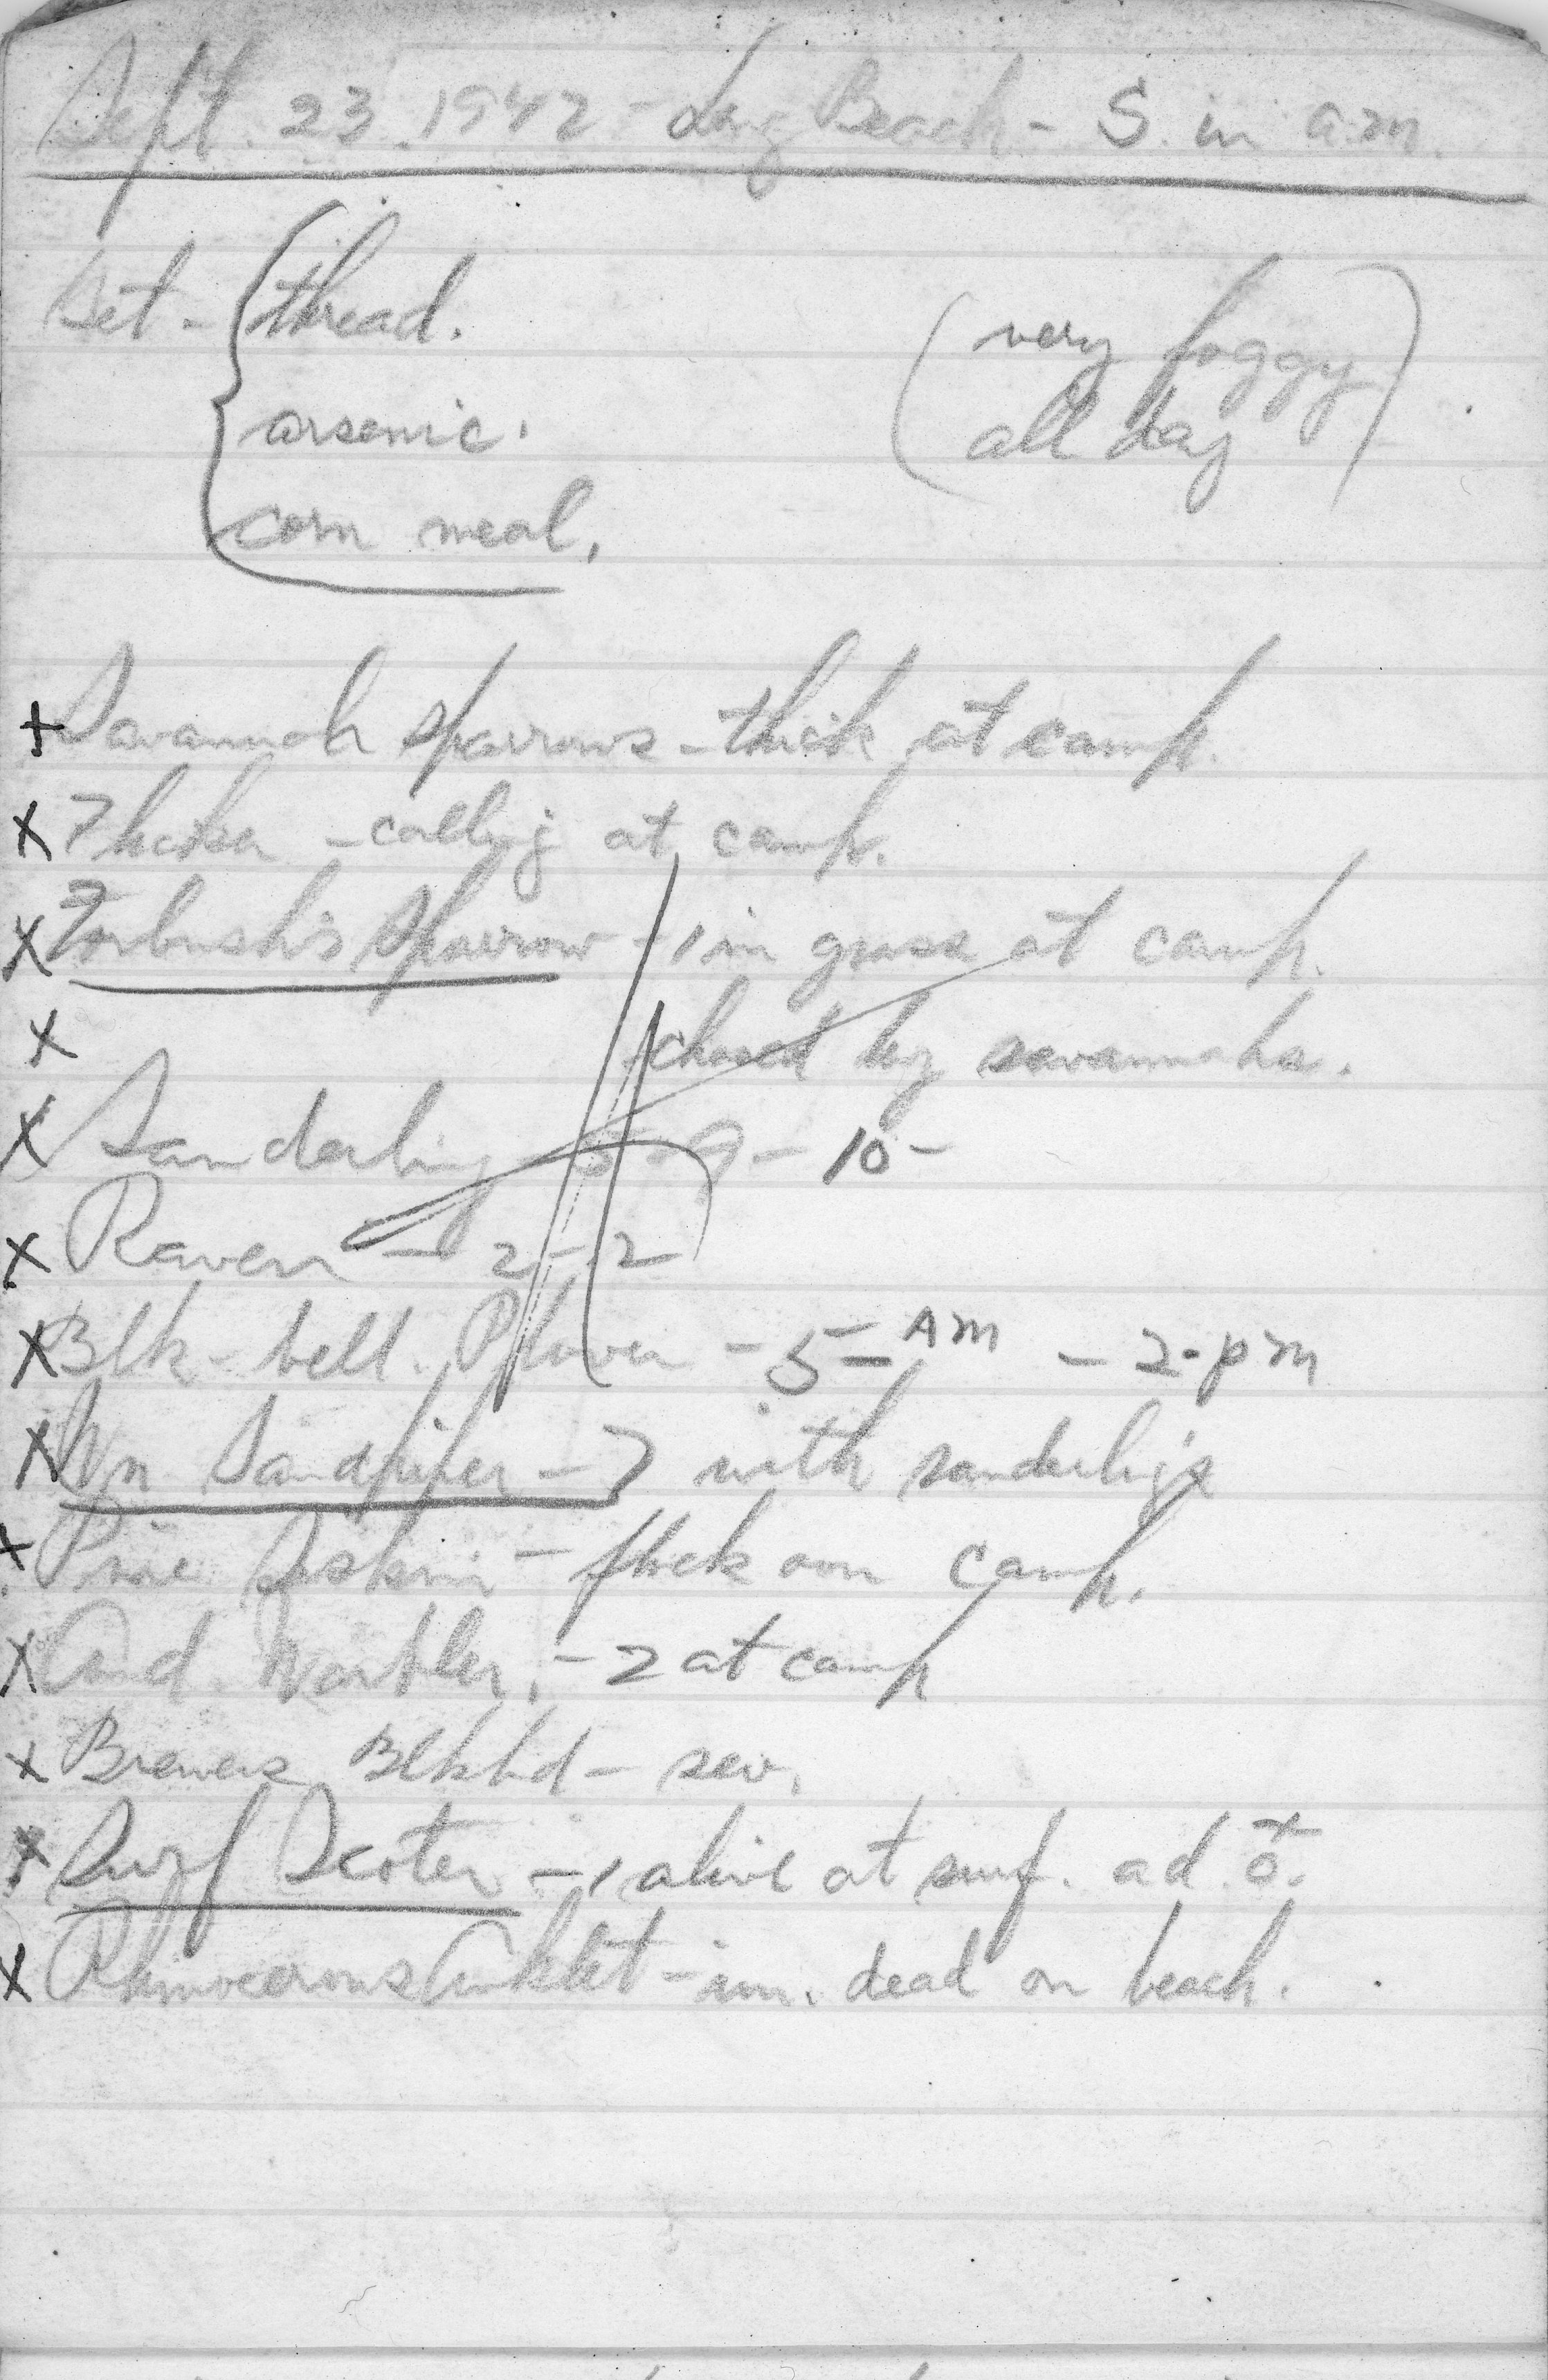 Sept. 23. 1942 - Long Beach - S. in a.m.
Get - thread.
arsenic.
corn meal.
(very foggy
all day)
x Savannah Sparrows - thick at camp.
x Flicker - calling at camp.
x Forbush's Sparrow - 1 in grass at camp.
x chased by savannahs.
x Sanderling - 5 - 9 - 10 -
x Raven - 2 - 2
x Blk-bell. Plover - 5 - AM - 2 - pm
x Wn Sandpiper - 7 with sanderlings
x Pine Siskin - flock over camp.
x Aud. Warbler. - 2 at camp
x Brewers Blkbd - sev.
x Surf Scoter - 1 alive at surf. ad. ♂.
x Rhinocerous Auklet - im. dead on beach.